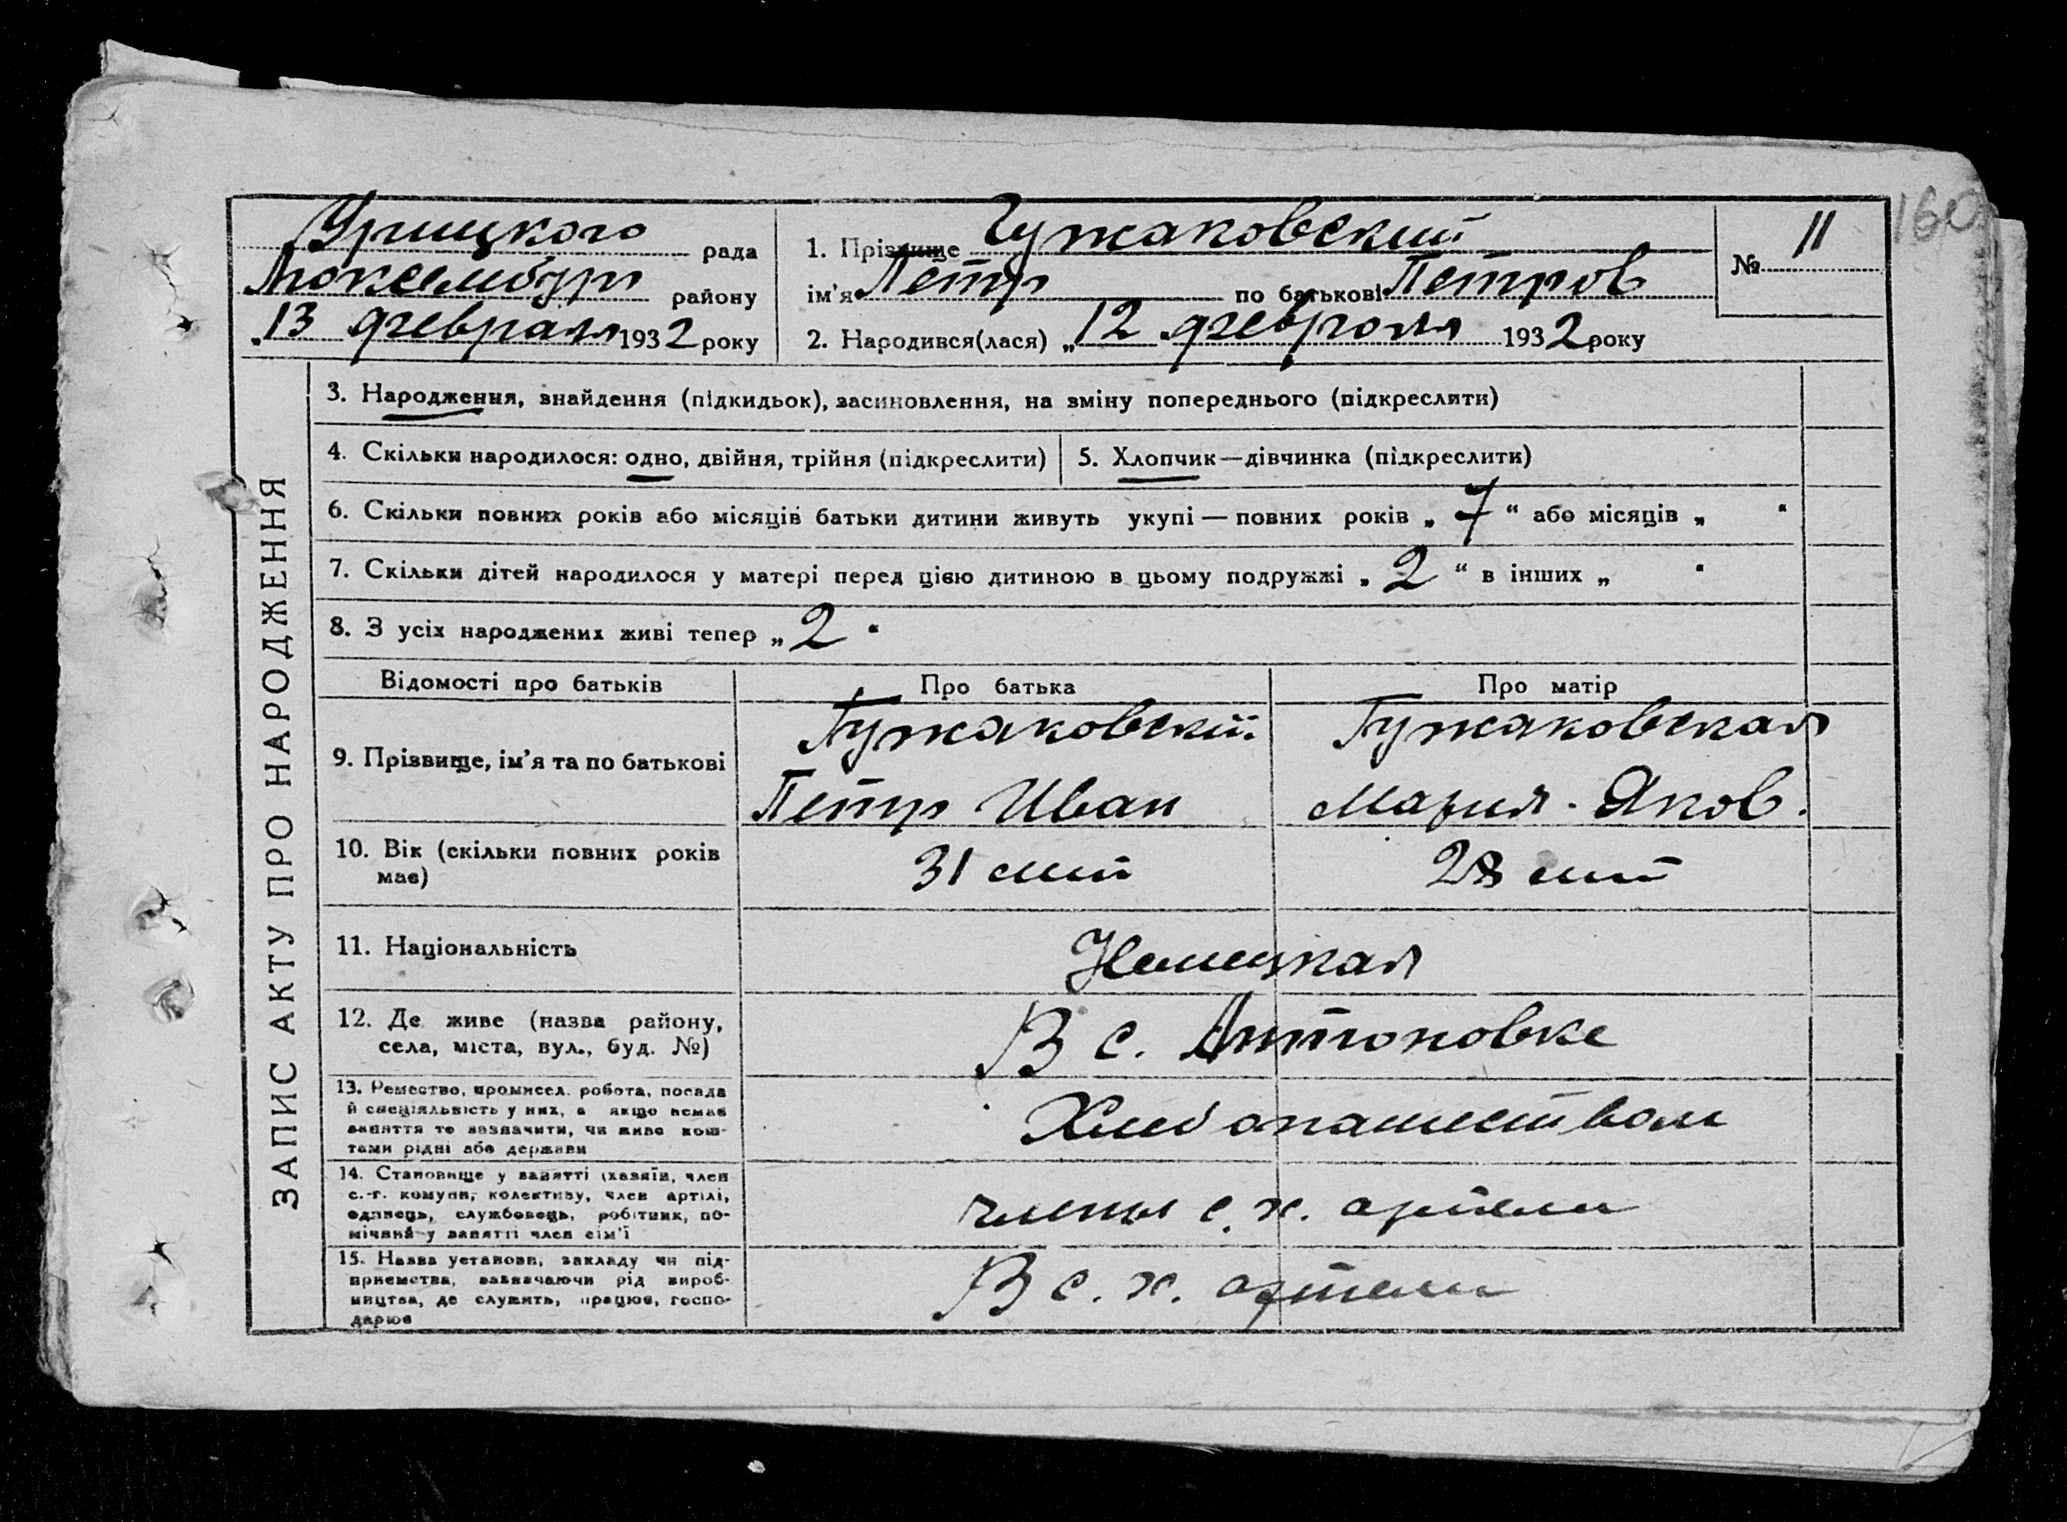 160
Урицкого рада
Люксембург району
„13 февраля 1932 року
1. Прізвище Гужаковский
ім'я Петр по батькові Петров
2. Народився(лася) „12 февроля 1932 року
№ 11
ЗАПИС АКТУ ПРО НАРОДЖЕННЯ
3. Народження, знайдення (підкидьок), засиновлення, на зміну попереднього (підкреслити)
4. Скільки народилося: одно, двійня, трійня (підкреслити)
5. Хлопчик—дівчинка (підкреслити)
6. Скільки повних років або місяців батьки дитини живуть укупі — повних років „ 7 “ або місяців „ “
7. Скільки дітей народилося у матері перед цією дитиною в цьому подружжі „ 2 “ в інших „ “
8. З усіх народжених живі тепер „ 2 “
Відомості про батьків
Про батька
Про матір
9. Прізвище, ім'я та по батькові
Гужаковский
Петр Иван
Гужаковская
Мария. Яков.
10. Вік (скільки повних років
має)
31 лет
28 лет
11. Національність
Немецкая
12. Де живе (назва району,
села, міста, вул., буд. №)
В с. Антоновке
13. Ремество, промисел, робота, посада
й спеціяльність у них, а якщо немає
заняття то зазначити, чи живе кош-
тами рідні або держави
Хлебопашеством
14. Становище у занятті (хазяїн, член
с.-г. комуни, колективу, член артілі,
одинець, службовець, робітник, по-
мічний у занятті член сім'ї
члены с. х. артели
15. Назва установи, закладу чи під-
приємства, зазначаючи рід вироб-
ництва, де служить, працює, госпо-
дарює
В с. х. артели